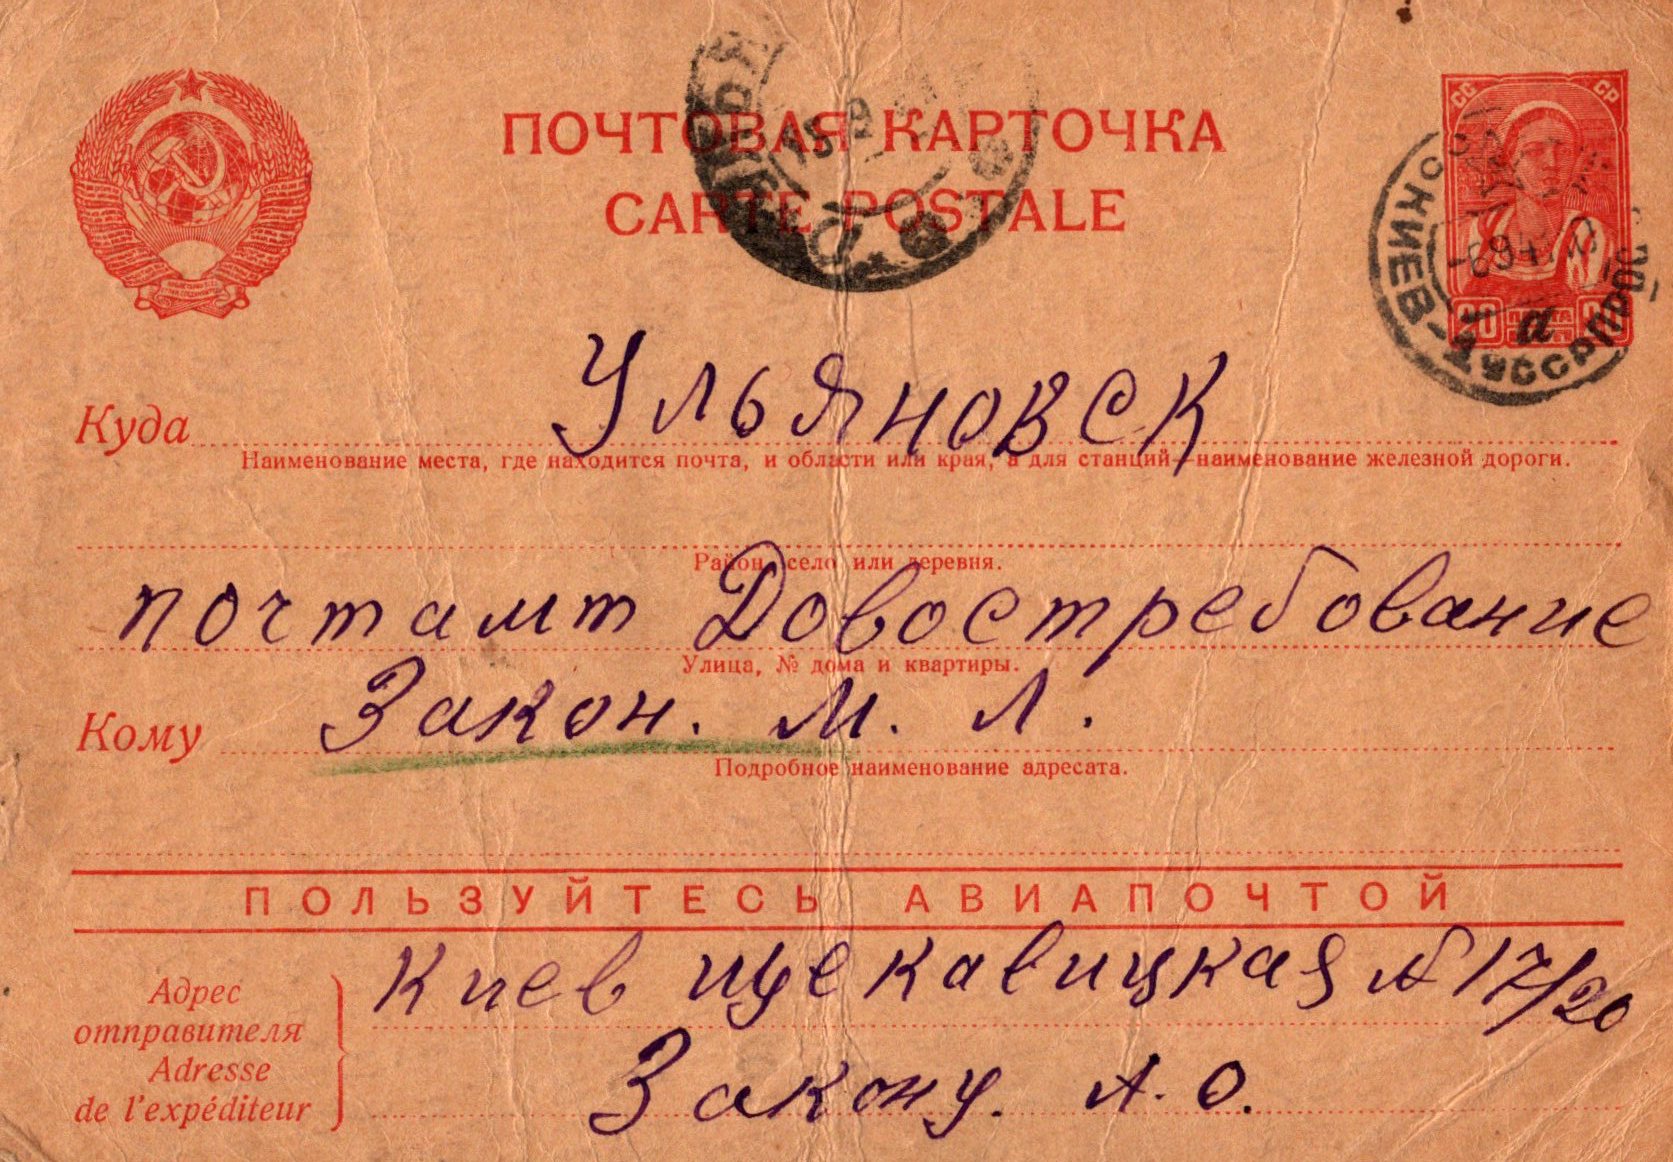 ПОЧТОВАЯ КАРТОЧКА
CARTE POSTALE
СС СР
20
КИЕВ
6941
а
Куда Ульяновск
Наименование места, где находится почта, и области или края, а для станций—наименование железной дороги.
Район, село или деревня.
почтамт Довостребование
Улица, № дома и квартиры.
Кому Закон. М. Л.
Подробное наименование адресата.
ПОЛЬЗУЙТЕСЬ АВИАПОЧТОЙ
Адрес отправителя
Adresse de l'expéditeur
Киев щекавицкая № 17/20
Закону. А. О.